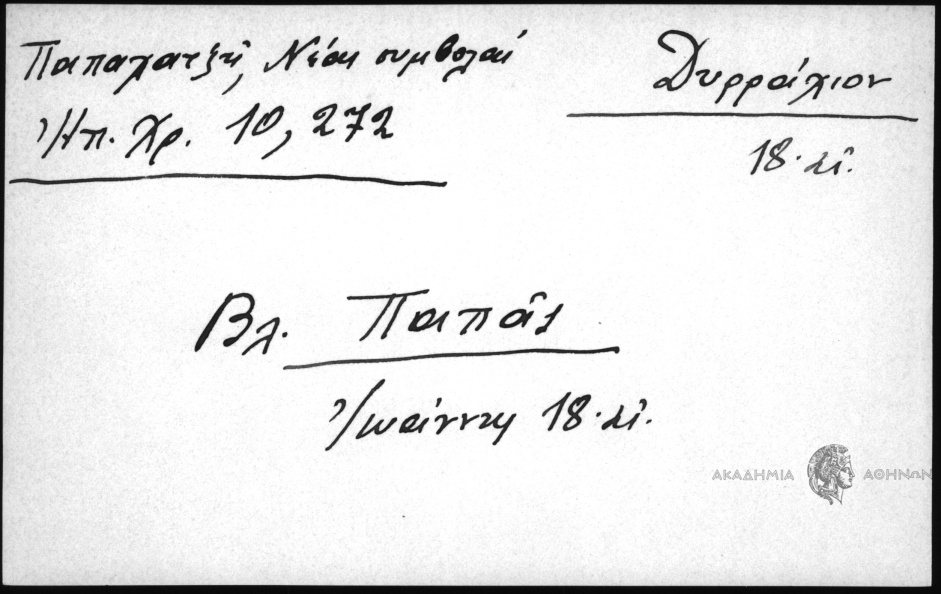 Παπαχατζῆ, Νέαι συμβολαί
Ἠπ. Χρ. 10, 272
Δυρράχιον
18. αἰ.
Βλ. Παπᾶς
Ἰωάννης 18. αἰ.
ΑΚΑΔΗΜΙΑ ΑΘΗΝΩΝ